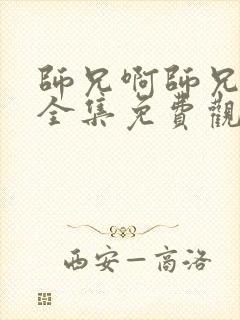 師兄啊師兄
全集免費觀
西安—高洛